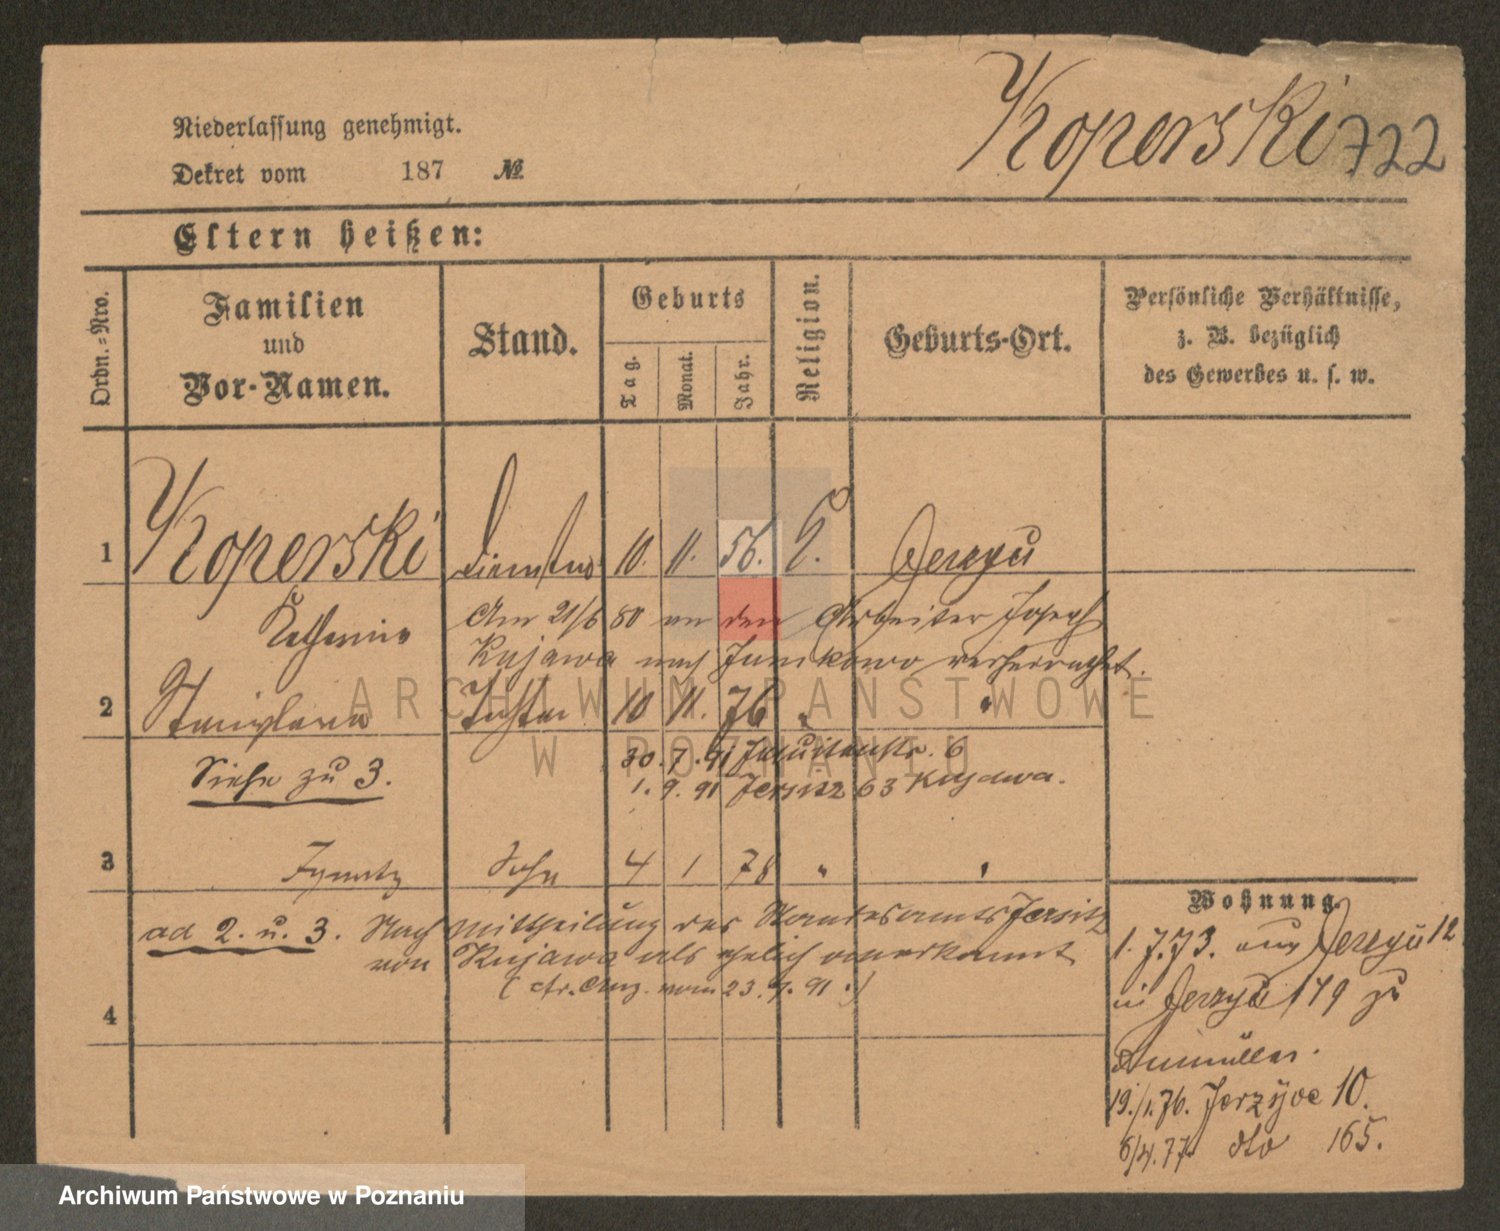 Niederlassung genehmigt.
Koperski 722
Dekret vom 187 №
Eltern heißen:
Ordn.-Nro.
Familien
und
Vor-Namen.
Stand.
Geburts
Tag.
Monat.
Jahr.
Religion.
Geburts-Ort.
Persönliche Verhältnisse,
z. B. bezüglich
des Gewerbes u. s. w.
1 Koperski 10. 11. 56. Jerzyü
Am 21/6 80 an den Arbeiter Joseph
Kujawa nach Junikowo verheirathet.
2 Stanislawa Tochter 10 11. 76 " "
Siehe zu 3.
30. 7. 91 Jesuitenstr. 6
1. 9. 91 Jersitz 63 Kujawa.
3 Ignatz Sohn 4 1 78 " "
ad 2. u. 3. Nach Mittheilung des Standesamts Jersitz
von Kujawa als ehelich anerkannt
(cfr. Anz. vom 23. 9. 91.)
4
Wohnung.
1. 7. 73. aus Jerzyü 12
in Jerzyü 179 zu
19./1. 76. Jerzyce 10.
6/4. 77. dto 165.
ARCHIWUM PAŃSTWOWE
W POZNANIU
Archiwum Państwowe w Poznaniu